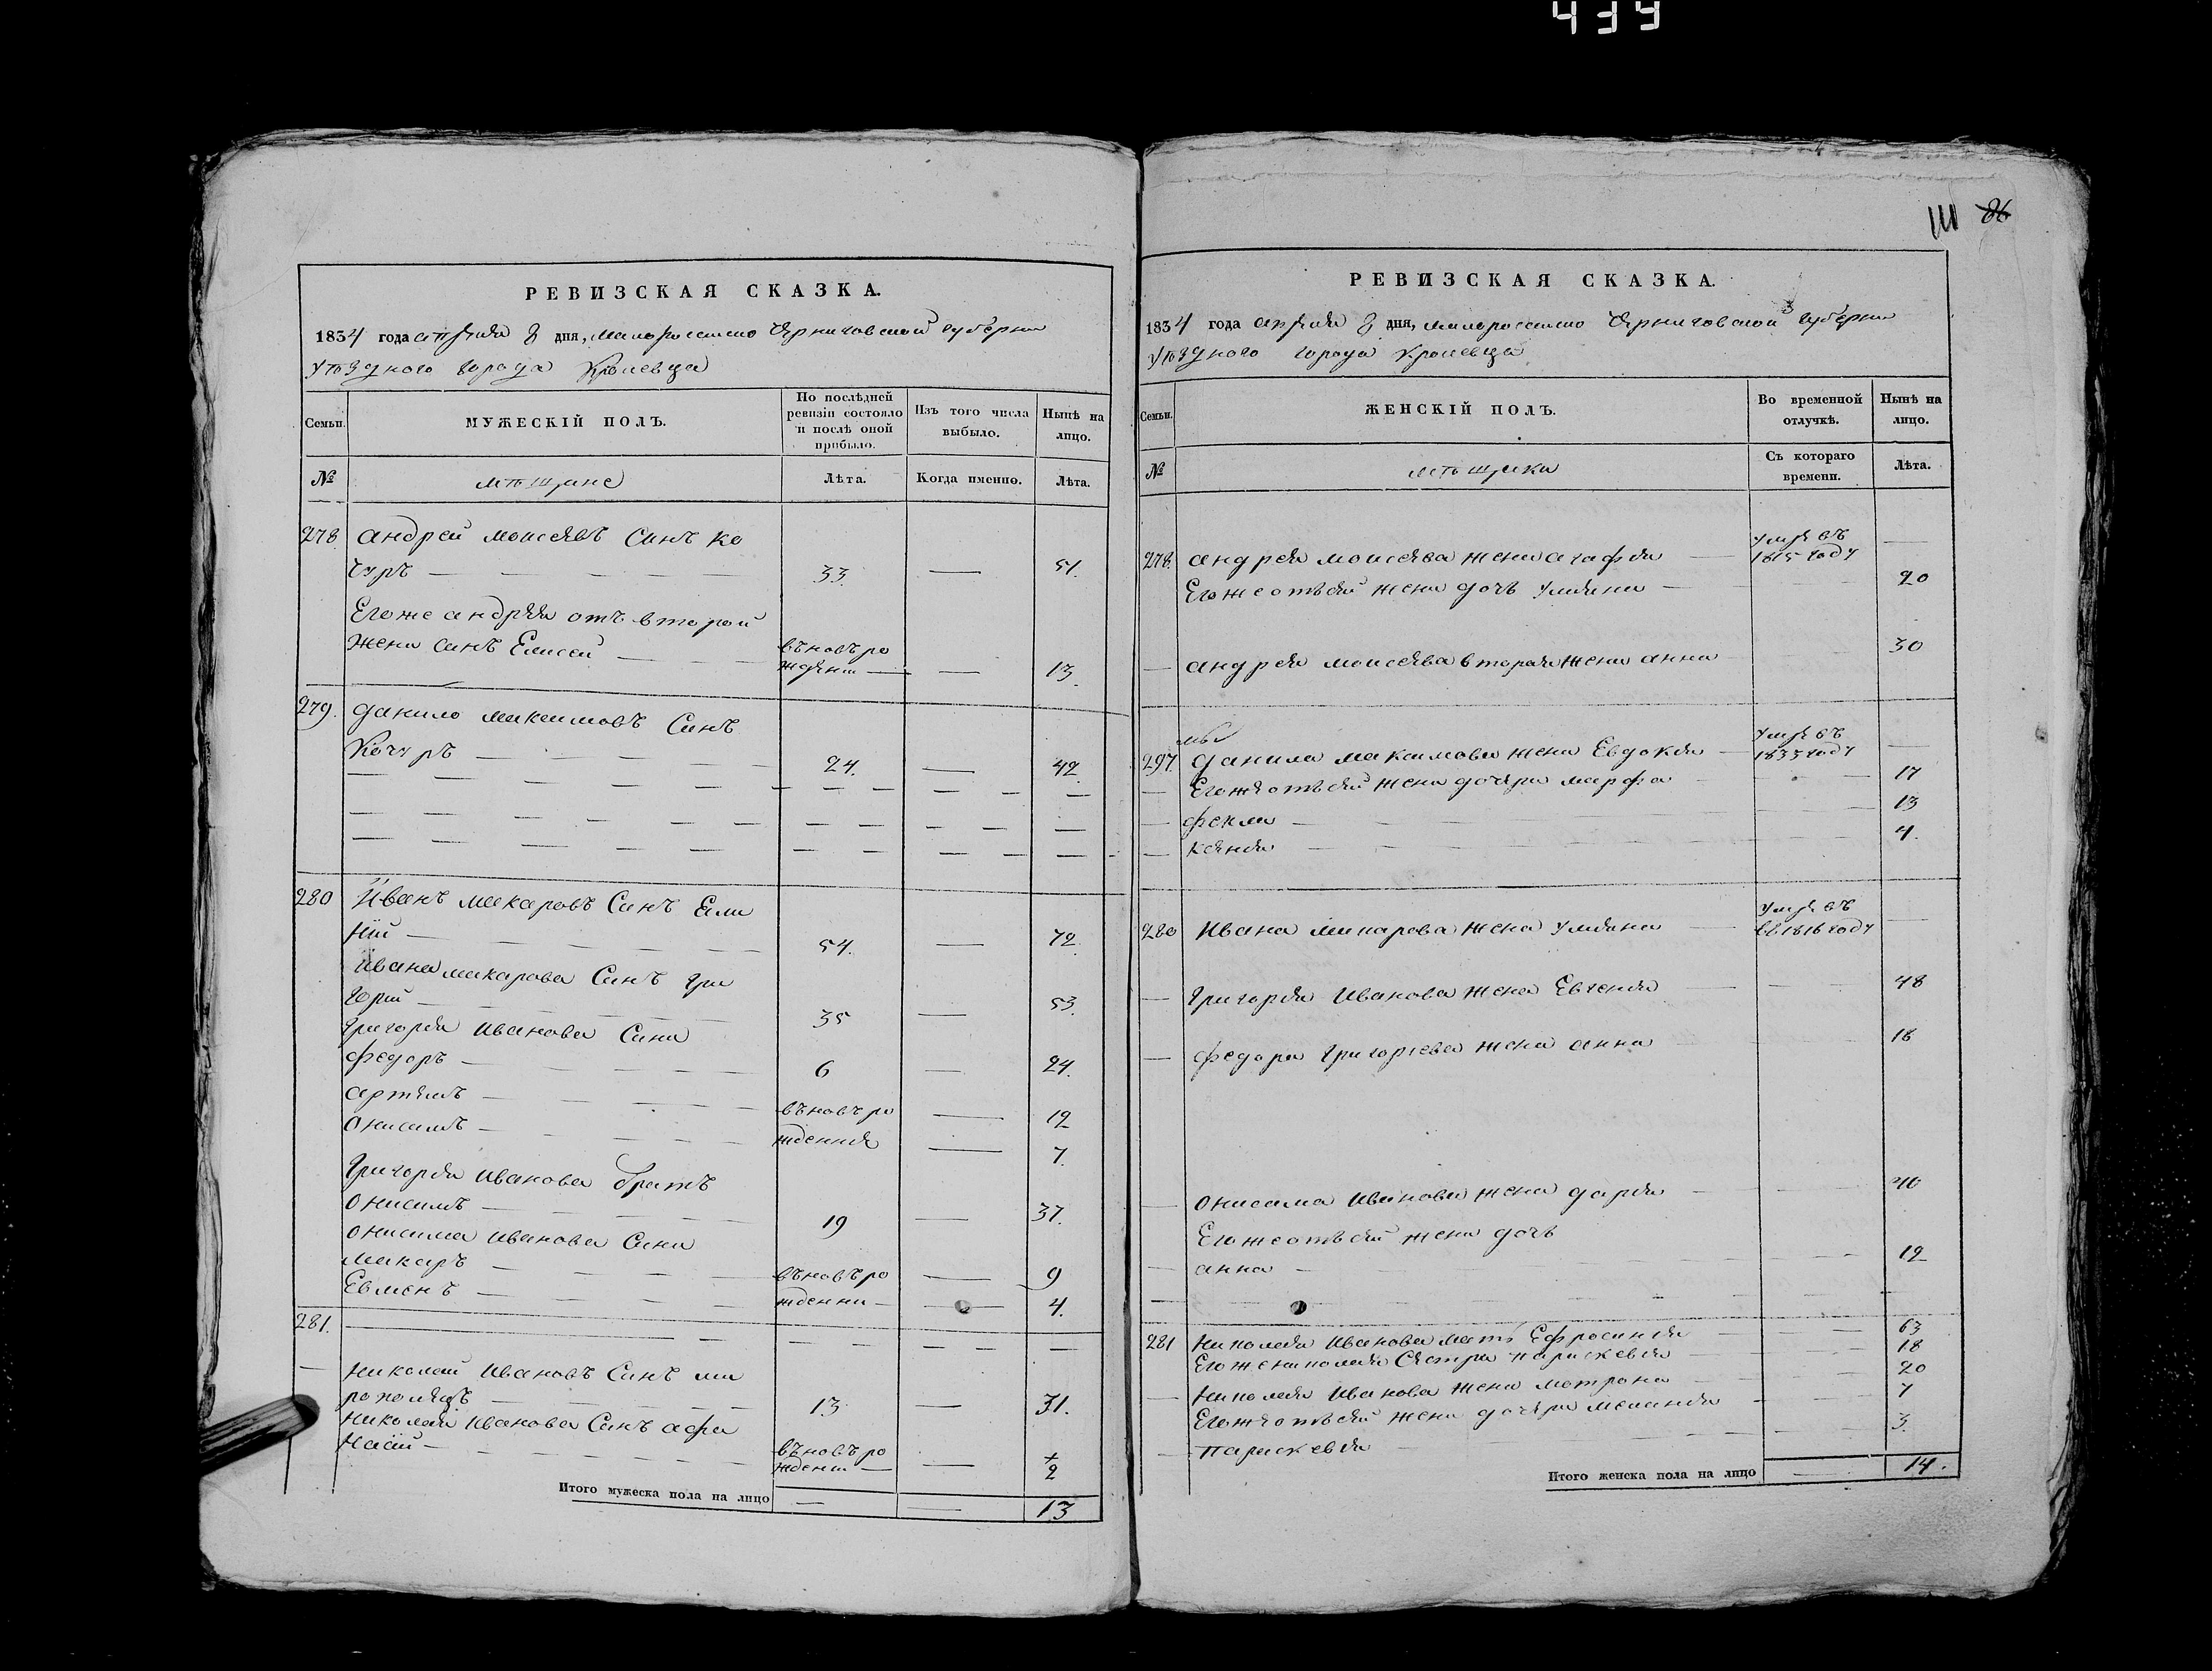 439
111 86
РЕВИЗСКАЯ СКАЗКА.
1834 года апреля 8 дня, малоросiйско Черниговской губернии
уѣздного города Кролевца
Семьи.
МУЖЕСКІЙ ПОЛЪ.
По послѣдней ревизіи состояло и послѣ оной прибыло.
Изъ того числа выбыло.
Нынѣ на лицо.
№
мѣщане
Лѣта.
Когда именно.
Лѣта.
278 андрей моисеевъ Синъ Ко
чуръ — 33. — 51.
Егоже андрея отъ второй
жени синъ Елисей — въновъ ро
ждени — — 13.
279. данило максимовъ Синъ
Кочуръ — 24. — 42.
280 Иванъ макаровъ Синъ
— 54. — 72.
Ивана макарова Синъ Гри
горій — 35 — 53.
Григорія Иванова Сини
федоръ — 6 — 24.
артемъ — въновъ ро — 12
Онисимъ — ждения — 7.
Григорія Иванова братъ
Онисимъ — 19 — 37.
Онисима Иванова Сини
макаръ — въновъ ро — 9
Евменъ — ждении — 4.
281.
Николай Ивановъ Синъ ми
рополецъ — 13 — 31.
Николая Иванова Синъ афа
насiй — въновъ ро
ждени — — 2
Итого мужеска пола на лицо — — 13
РЕВИЗСКАЯ СКАЗКА.
1834 года апреля 8 дня, малоросiйско Черниговской губернии
уѣздного города Кролевца
Семьи.
ЖЕНСКІЙ ПОЛЪ.
Во временной отлучкѣ.
Нынѣ на лицо.
№
мѣщанки
Съ котораго времени.
Лѣта.
278. андрея моисеева жена агафия — умре въ 1815 году —
Егоже отъ сей жени дочь улияна — 20
— андрея моисеева вторая жена анна — 30
297. данила максимова жена Евдокия — умре въ 1833 году —
— Егоже отъ сей жени дочери марфа — 17
— фекла — 13
— Ксения — 4.
280 Ивана макарова жена улияна — умре въ 1816 году —
— Григория Иванова жена Евгения — 48
— федора Григориева жена анна — 18
— Онисима Иванова жена дария — 40
Егоже отъ сей жени дочь
— анна — 12
281 Николая Иванова мать Ефросиния — 63
Егоже николая Сестра парискевия — 18
— Николая Иванова жена мотрона — 20
Егоже отъ сей жени дочери мелания — 7
— парискевия — 3.
Итого женска пола на лицо — 14.